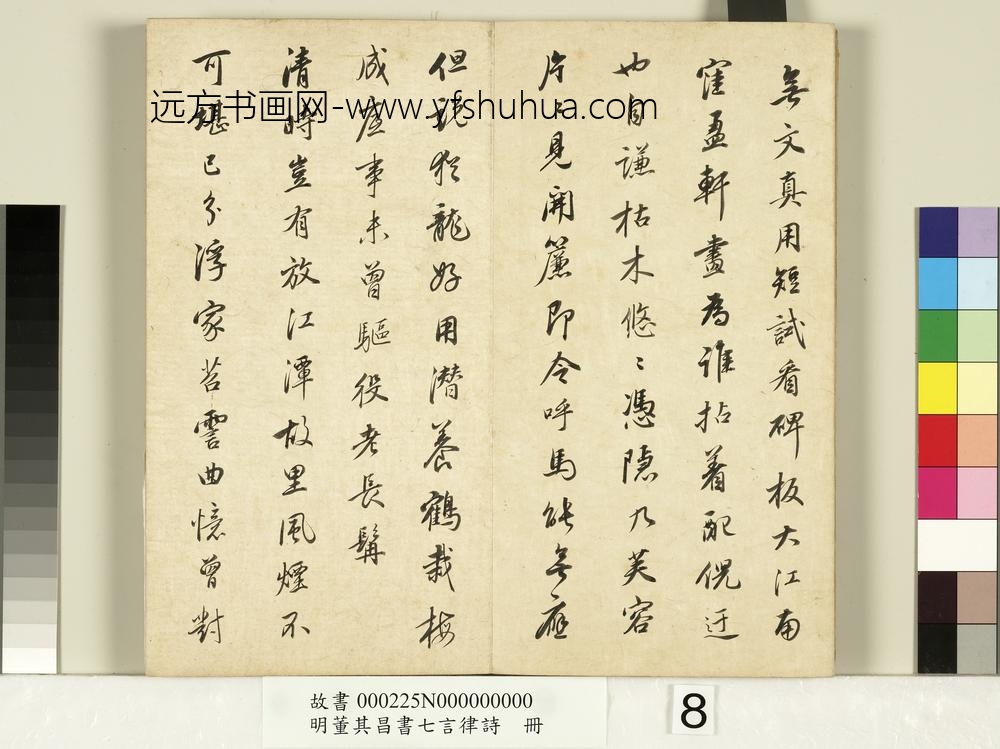 無文真用短試看碑板大江南
窪盈軒畫為誰拈着配倪迂
也自謙枯木悠〻憑隱几芙容
片〻見開簾即令呼馬能無應
但說猶龍好用潛養鶴栽梅
成底事未曾驅役老長髯
清時豈有放江潭故里風煙不
可堪已分浮家苕霅曲憶曾對
远方书画网-www.yfshuhua.com
故書 000225N000000000
明董其昌書七言律詩 冊
8